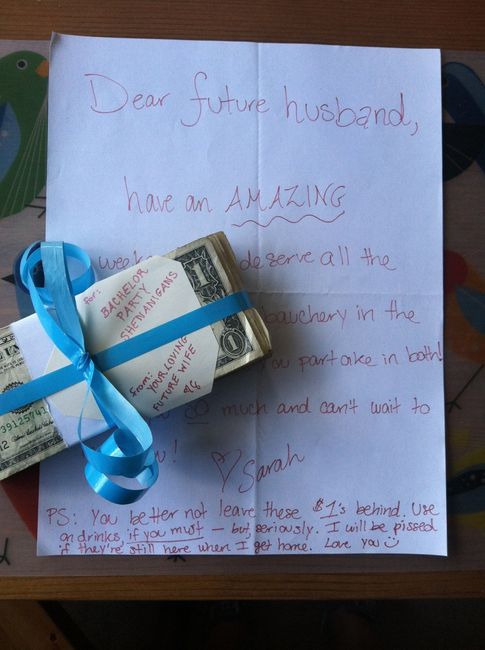 Dear future husband,
have an AMAZING
deserve all the
bauchery in the
partake in both!
so much and can't wait to
Sarah
PS: You better not leave these $1's behind. Use
on drinks, if you must - but, seriously. I will be pissed
if they're still here when I get home. Love you
For:
BACHELOR
PARTY
SHENANIGANS
From:
YOUR LOVING
FUTURE WIFE
1